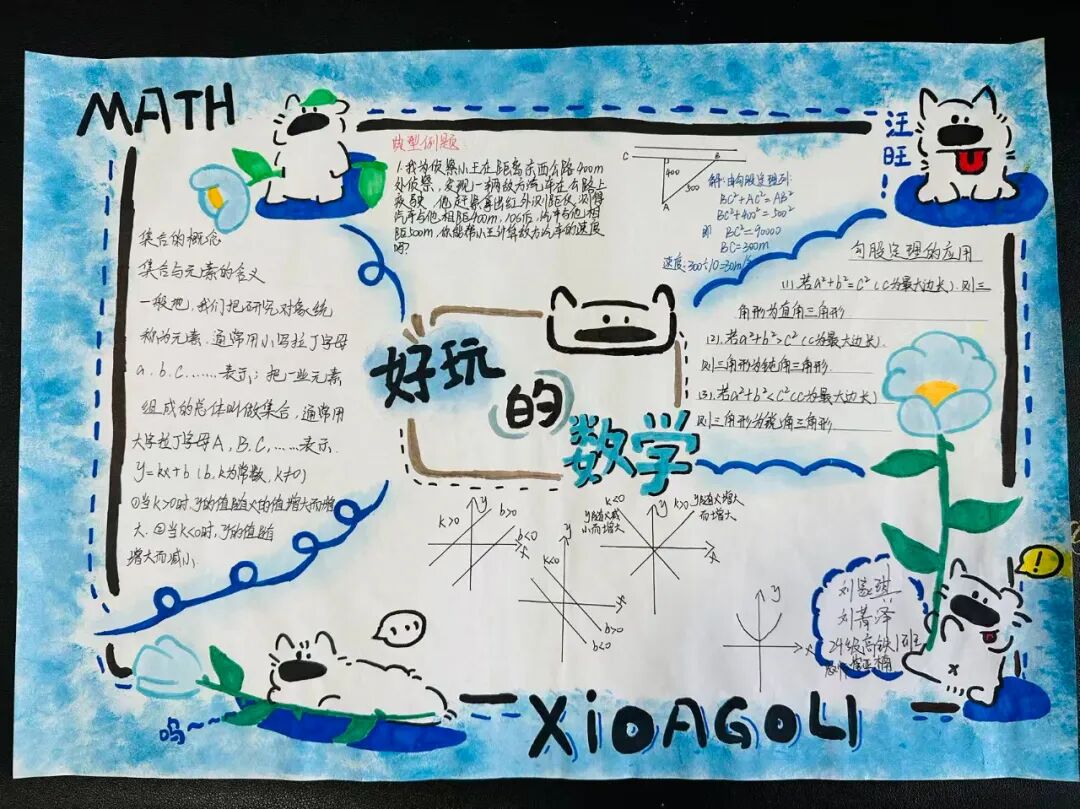 MATH
汪
旺!
典型例题:
1.我为侦察小王在距离东西公路400m
处侦察,发现一辆敌方汽车在公路上
疾驶,他赶紧拿出红外测距仪,测得
汽车与他相距400m,10s后,汽车与他相
距500m,你能帮小王计算敌方汽车的速度
吗?
C
B
400
500
A
解:由勾股定理得:
BC²+AC²=AB²
BC²+400²=500²
即 BC²=90000
BC=300m
速度:300÷10=30m/s
集合的概念
集合与元素的含义
一般把,我们把研究对象统
称为元素.通常用小写拉丁字母
a.b.c.……表示;把一些元素
组成的总体叫做集合,通常用
大字拉丁字母A,B,C,……表示.
y=kx+b(b,k为常数,k≠0)
①当k>0时,y的值随x的值增大而增
大.②当k<0时,y的值随
增大而减小
勾股定理的应用
(1).若a²+b²=c²(c为最大边长).则三
角形为直角三角形
(2).若a²+b²>c²(c为最大边长).
则三角形为钝角三角形.
(3).若a²+b²<c²(c为最大边长)
则三角形为锐角三角形
好玩
的
数学
k>0
y
b>0
b<0
x
y
k<0
x
b>0
b<0
k<0
y
k>0
y随x增大
而增大
y随x减
小而增大
x
y
x
刘
刘菁泽
24级高铁1班
呜~~
XiOAGOLI